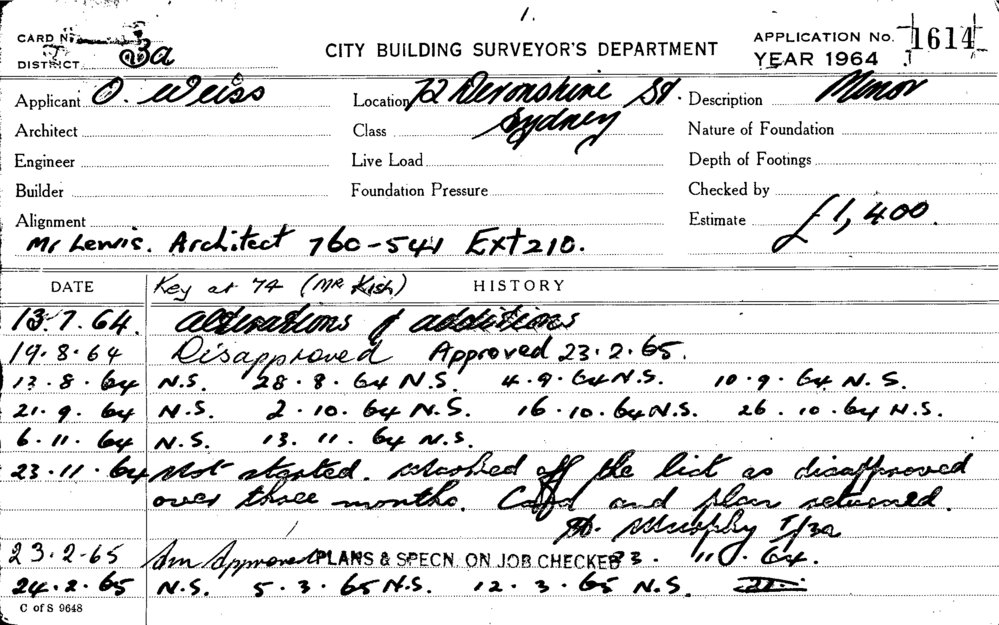 1.
CARD No.
DISTRICT 3a
CITY BUILDING SURVEYOR'S DEPARTMENT
APPLICATION No. 1614
YEAR 1964
Applicant O. Weiss Location 72 Devonshire St. Description Minor
Architect Class Sydney Nature of Foundation
Engineer Live Load Depth of Footings
Builder Foundation Pressure Checked by
Alignment Estimate £1,400.
Mr Lewis. Architect 760-541 Ext 210.
DATE Key at 74 (Mr Kish) HISTORY
13.7.64. Alterations & additions
19.8.64 Disapproved Approved 23.2.65.
13.8.64 N.S. 28.8.64 N.S. 4.9.64 N.S. 10.9.64 N.S.
21.9.64 N.S. 2.10.64 N.S. 16.10.64 N.S. 26.10.64 N.S.
6.11.64 N.S. 13.11.64 N.S.
23.11.64 Not started. Marked off the list as disapproved
over three months. Card and plan returned.
Murphy
23.2.65 Am Approved PLANS & SPECN. ON JOB CHECKED 23.11.64.
24.2.65 N.S. 5.3.65 N.S. 12.3.65 N.S.
C of S 9648